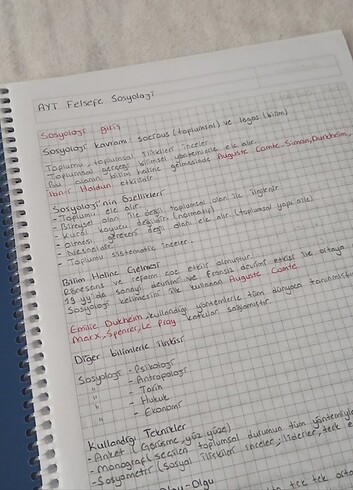 AYT Felsefe Sosyoloji
Sosyoloji Giriş
Sosyoloji kavramı: socıous (toplumsal) ve logos (bilim)
Toplumu, toplumsal ilişkileri inceler.
Toplumsal gerçeği bilimsel yöntemlerle ele alır.
Bu alanın bilim haline gelmesinde Auguste Comte, Simon, Durkheim,
İbni Haldun etkilidir.
Sosyoloji'nin Özellikleri
- Toplumu ele alır.
- Bireysel olan ile değil toplumsal olan ile ilgilenir.
- Kural koyucu değildir. (normatif)
- Olması gerekeni değil olanı ele alır. (toplumsal yapı aile)
- Nesneldir.
- Toplumu sistematik inceler.
Bilim Haline Gelmesi
Rönesans ve reform çok etkili olmuştur.
19. yy'da sanayi devrimi ve Fransız devrimi etkisi ile ortaya
Sosyoloji kelimesini ilk kullanan Auguste Comte
Emilie Dukheim, kullandığı yöntemlerle tüm dünyaca tanınmıştır
Marx, Spencer, Le Play katkılar sağlamıştır.
Diğer bilimlerle ilişkisi
Sosyoloji - Psikoloji
" - Antropoloji
" - Tarih
" - Hukuk
" - Ekonomi
Kullandığı Teknikler
- Anket (Görüşme, yüz yüze)
- Monografi seçilen toplumsal durumun tüm yöntemiyle
- Sosyometri (sosyal ilişkileri inceler, liderler, terk e
Olay-Olgu
tek tek orta